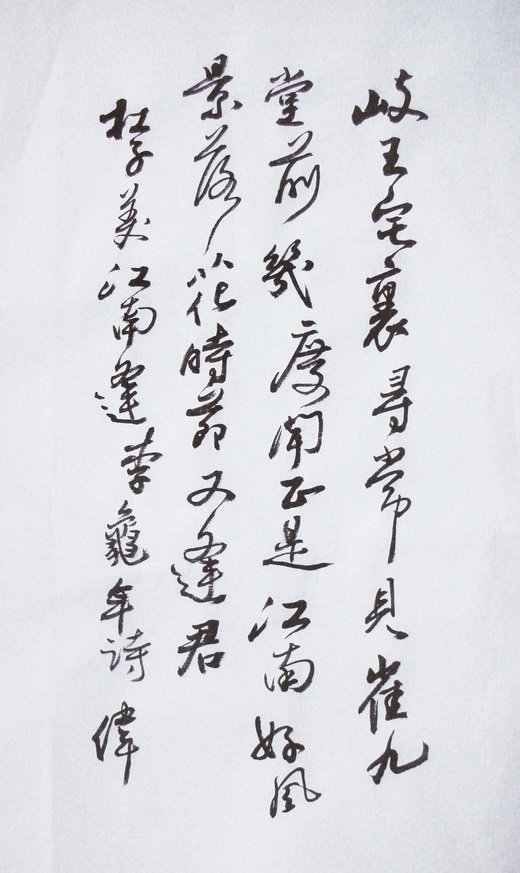 岐王宅裏尋常見崔九
堂前幾度聞正是江南好風
景落花時節又逢君
杜子美江南逢李龜年詩 偉